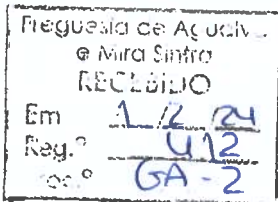 Freguesia de Agualva
e Mira Sintra
RECEBIDO
Em 1/2/24
Reg.º 412
Doc.º GA-2